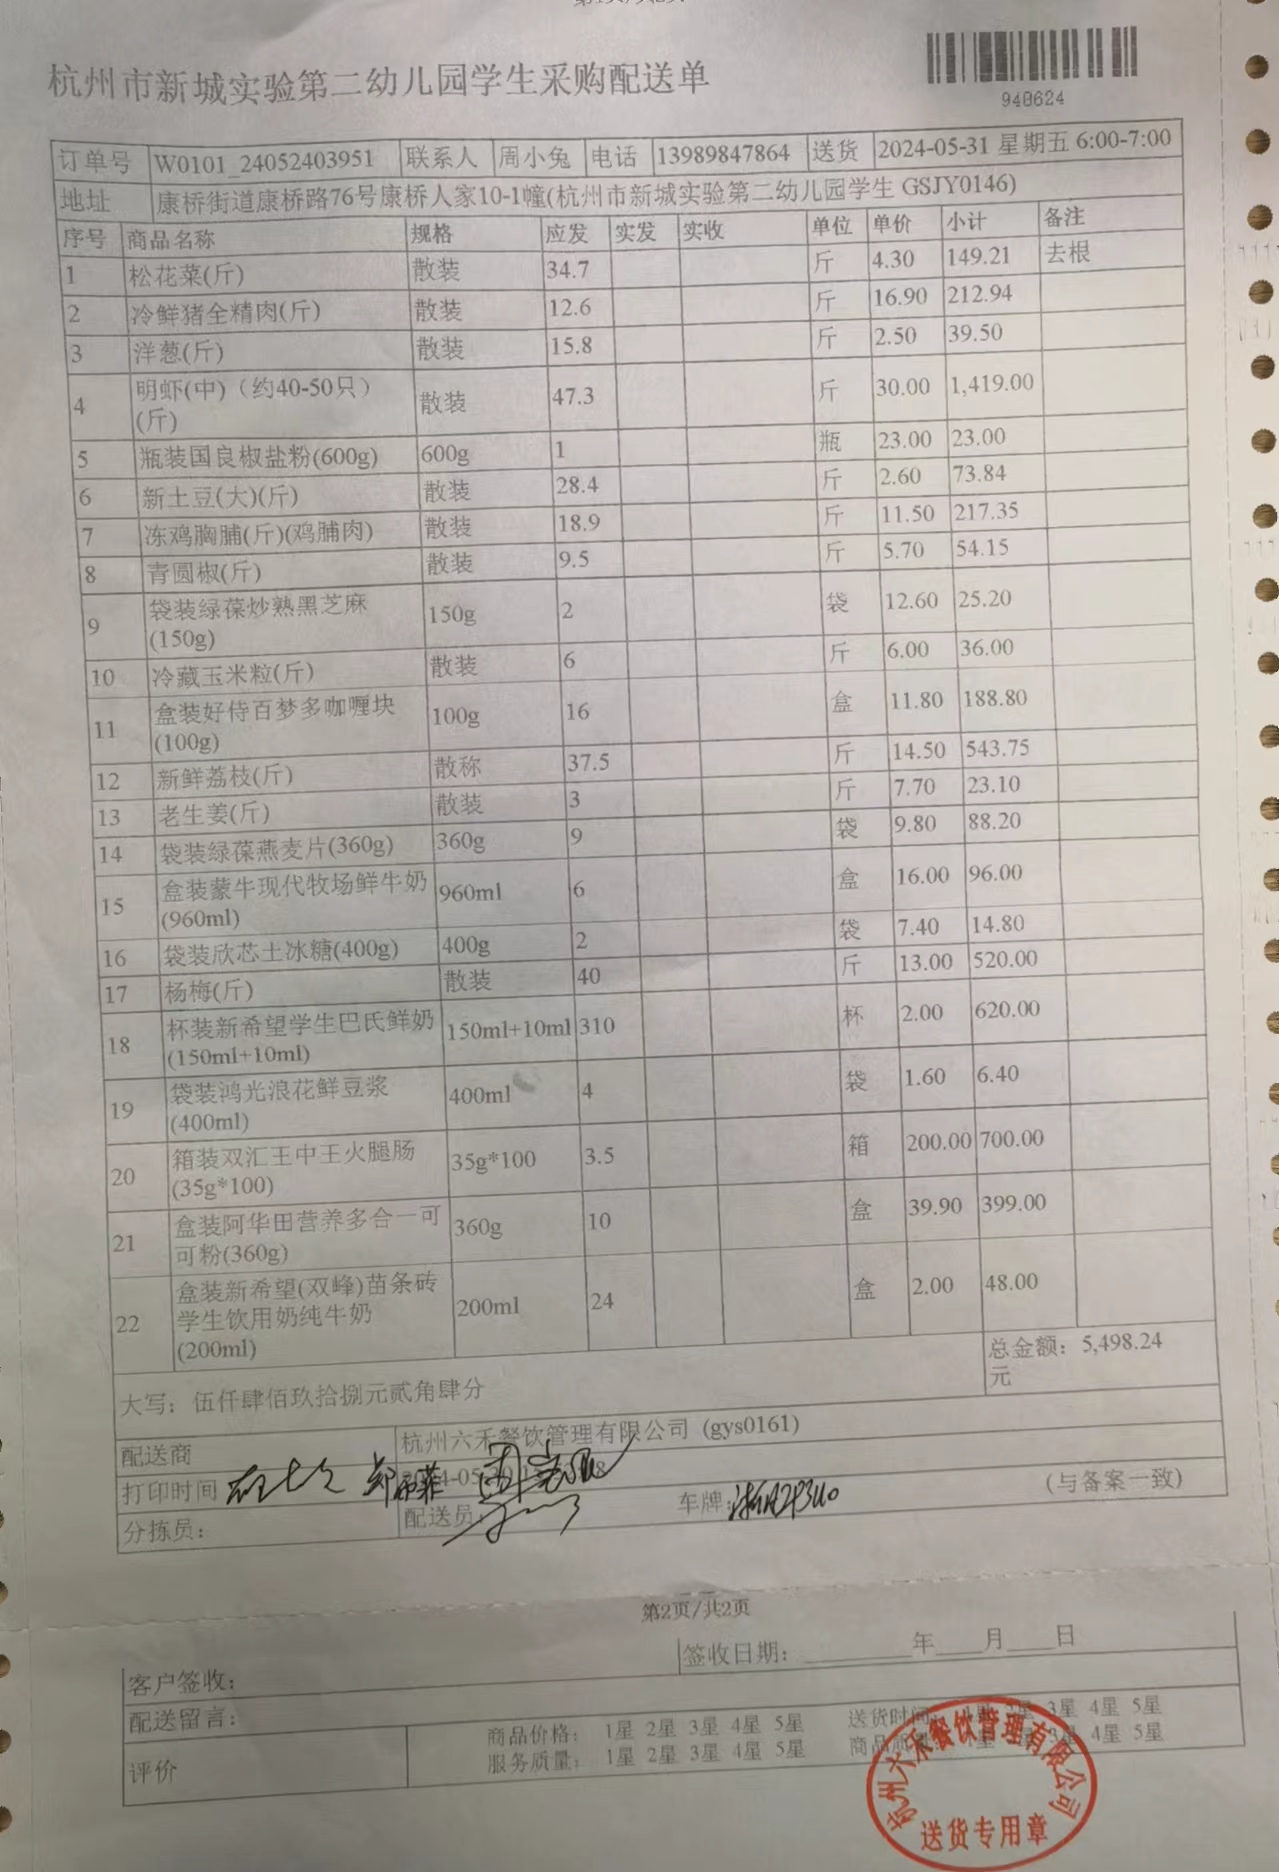 杭州市新城实验第二幼儿园学生采购配送单
940624
订单号 W0101_24052403951 联系人 周小兔 电话 13989847864 送货 2024-05-31 星期五 6:00-7:00
地址 康桥街道康桥路76号康桥人家10-1幢(杭州市新城实验第二幼儿园学生 GSJY0146)
序号 商品名称 规格 应发 实发 实收 单位 单价 小计 备注
1 松花菜(斤) 散装 34.7 斤 4.30 149.21 去根
2 冷鲜猪全精肉(斤) 散装 12.6 斤 16.90 212.94
3 洋葱(斤) 散装 15.8 斤 2.50 39.50
4 明虾(中)（约40-50只） 散装 47.3 斤 30.00 1,419.00
(斤)
5 瓶装国良椒盐粉(600g) 600g 1 瓶 23.00 23.00
6 新土豆(大)(斤) 散装 28.4 斤 2.60 73.84
7 冻鸡胸脯(斤)(鸡脯肉) 散装 18.9 斤 11.50 217.35
8 青圆椒(斤) 散装 9.5 斤 5.70 54.15
9 袋装绿葆炒熟黑芝麻 150g 2 袋 12.60 25.20
(150g)
10 冷藏玉米粒(斤) 散装 6 斤 6.00 36.00
11 盒装好侍百梦多咖喱块 100g 16 盒 11.80 188.80
(100g)
12 新鲜荔枝(斤) 散称 37.5 斤 14.50 543.75
13 老生姜(斤) 散装 3 斤 7.70 23.10
14 袋装绿葆燕麦片(360g) 360g 9 袋 9.80 88.20
15 盒装蒙牛现代牧场鲜牛奶 960ml 6 盒 16.00 96.00
(960ml)
16 袋装欣芯土冰糖(400g) 400g 2 袋 7.40 14.80
17 杨梅(斤) 散装 40 斤 13.00 520.00
18 杯装新希望学生巴氏鲜奶 150ml+10ml 310 杯 2.00 620.00
(150ml+10ml)
19 袋装鸿光浪花鲜豆浆 400ml 4 袋 1.60 6.40
(400ml)
20 箱装双汇王中王火腿肠 35g*100 3.5 箱 200.00 700.00
(35g*100)
21 盒装阿华田营养多合一可 360g 10 盒 39.90 399.00
可粉(360g)
22 盒装新希望(双峰)苗条砖 200ml 24 盒 2.00 48.00
学生饮用奶纯牛奶
(200ml)
大写：伍仟肆佰玖拾捌元贰角肆分 总金额：5,498.24
元
配送商 杭州六禾餐饮管理有限公司 (gys0161)
打印时间
分拣员： 配送员： 车牌： (与备案一致)
第2页/共2页
客户签收： 签收日期： 年 月 日
配送留言：
评价 商品价格： 1星 2星 3星 4星 5星 送货时间： 1星 2星 3星 4星 5星
服务质量： 1星 2星 3星 4星 5星 商品质量： 1星 2星 3星 4星 5星
杭州六禾餐饮管理有限公司
送货专用章